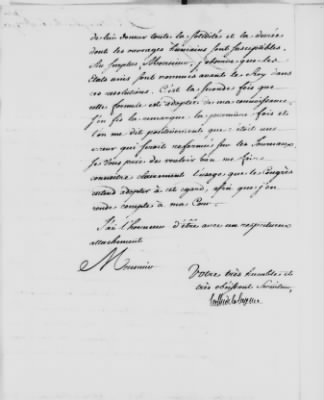 de lui donner toute la solidité et la durée
dont les ouvrages humains sont susceptibles.
Au surplus, Monsieur, j'observe que les
Etats unis sont nommés avant le Roy dans
ces resolutions. C'est la seconde fois que
cette formule est adoptée à ma connoissance.
J'en fis la remarque la premiere fois et
l'on me dit positivement que c'étoit une
erreur qui seroit reformée sur les Journaux.
Je vous prie de vouloir bien me faire
connoitre clairement l'usage que le Congrès
entend adopter à cet egard, afin que j'en
rende compte à ma Cour.
J'ai l'honneur d'être avec un respectueux
attachement
Monsieur
Votre très humble et
très obéissant Serviteur